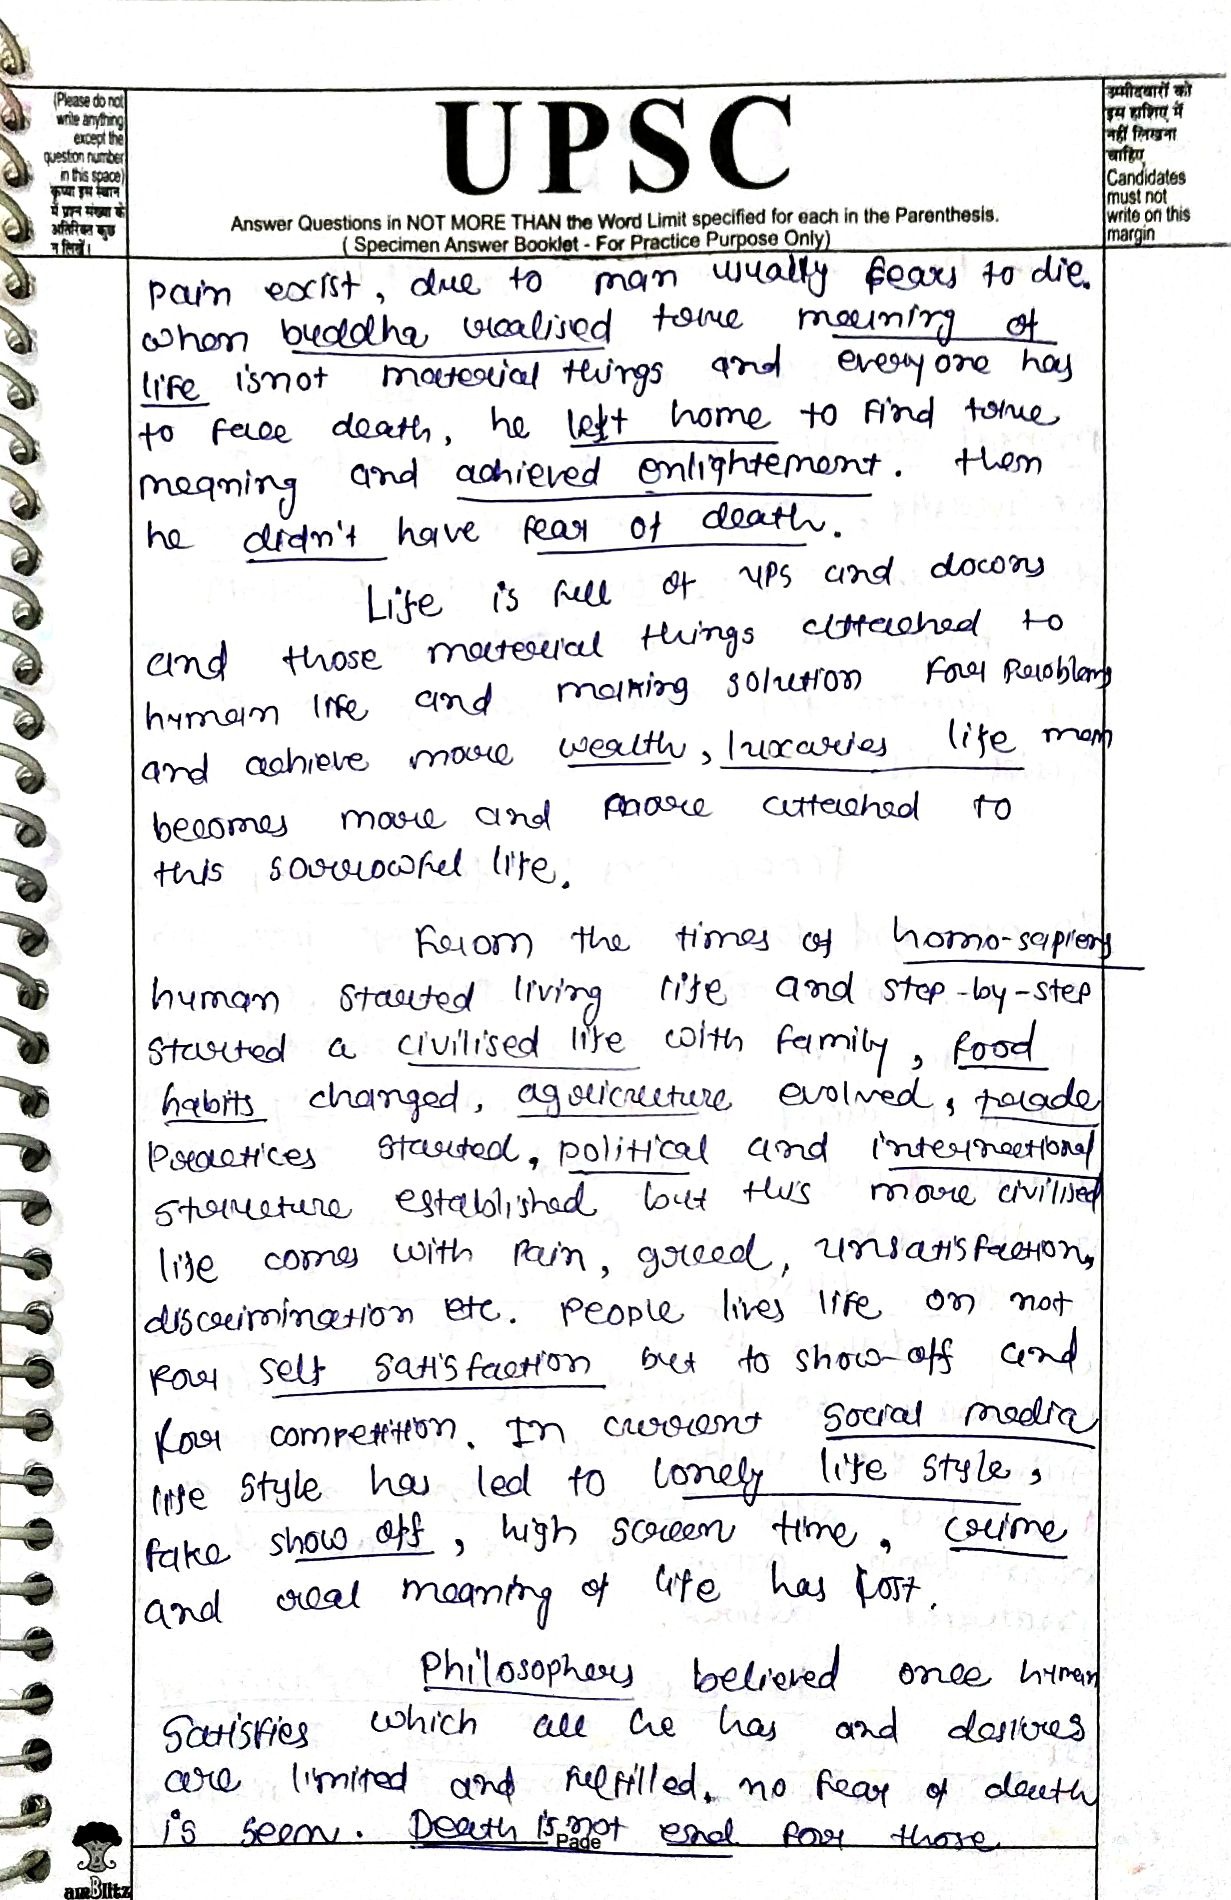 (Please do not
write anything
except the
question number
in this space)
कृप्या इस स्थान
में प्रश्न संख्या के
अतिरिक्त कुछ
न लिखें।
UPSC
Answer Questions in NOT MORE THAN the Word Limit specified for each in the Parenthesis.
( Specimen Answer Booklet - For Practice Purpose Only)
उम्मीदवारों को
इस हाशिए में
नहीं लिखना
चाहिए
Candidates
must not
write on this
margin
pain exist, due to man usually fears to die.
when buddha realised true meaning of
life isnot material things and everyone has
to face death, he left home to find true
meaning and achieved enlightement. then
he didn't have fear of death.
Life is full of ups and downs
and those material things attached to
human life and making solution for problems
and achieve more wealth, luxuries life man
becomes more and more attached to
this sorrowful life.
From the times of homo-sapiens
human started living life and step-by-step
started a civilised life with family, food
habits changed, agriculture evolved, trade
practices started, political and international
structure established but this more civilised
life comes with pain, greed, unsatisfaction,
discrimination etc. people lives life on not
for self satisfaction but to show-off and
for competition. In current social media
life style has led to lonely life style,
fake show off, high screen time, crime
and real meaning of life has lost.
Philosophers believed once human
satisfies which all he has and desires
are limited and fulfilled, no fear of death
is seen. Death is not end for those
Page
amBlitz